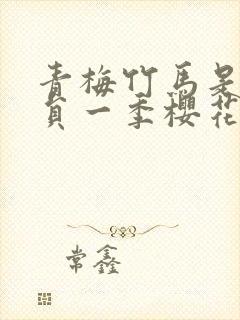 青梅竹马是
负一季樱花
常鑫